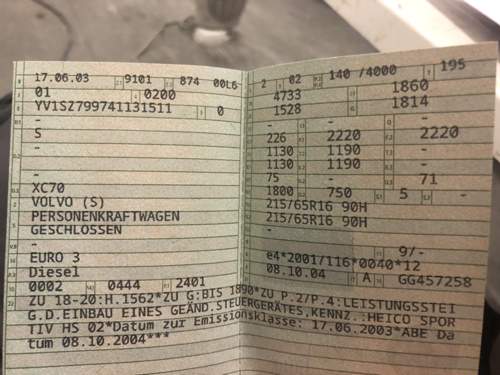 17.06.03 9101 874 00L6
01 0200
YV1SZ799741131511 0
-
S
-
-
XC70
VOLVO (S)
PERSONENKRAFTWAGEN
GESCHLOSSEN
-
EURO 3
Diesel
0002 0444 2401
2 02 140 /4000 195
4733 1860
1528 1814
- - -
226 2220 2220
1130 1190 -
1130 1190 -
75 - 71
1800 750 5 -
215/65R16 90H
215/65R16 90H
-
9/-
e4*2001/116*0040*12
08.10.04 A GG457258
ZU 18-20:H.1562*ZU G:BIS 1890*ZU P.2/P.4:LEISTUNGSSTEI
G.D.EINBAU EINES GEÄND.STEUERGERÄTES,KENNZ.:HEICO SPOR
TIV HS 02*Datum zur Emissionsklasse: 17.06.2003*ABE Da
tum 08.10.2004***